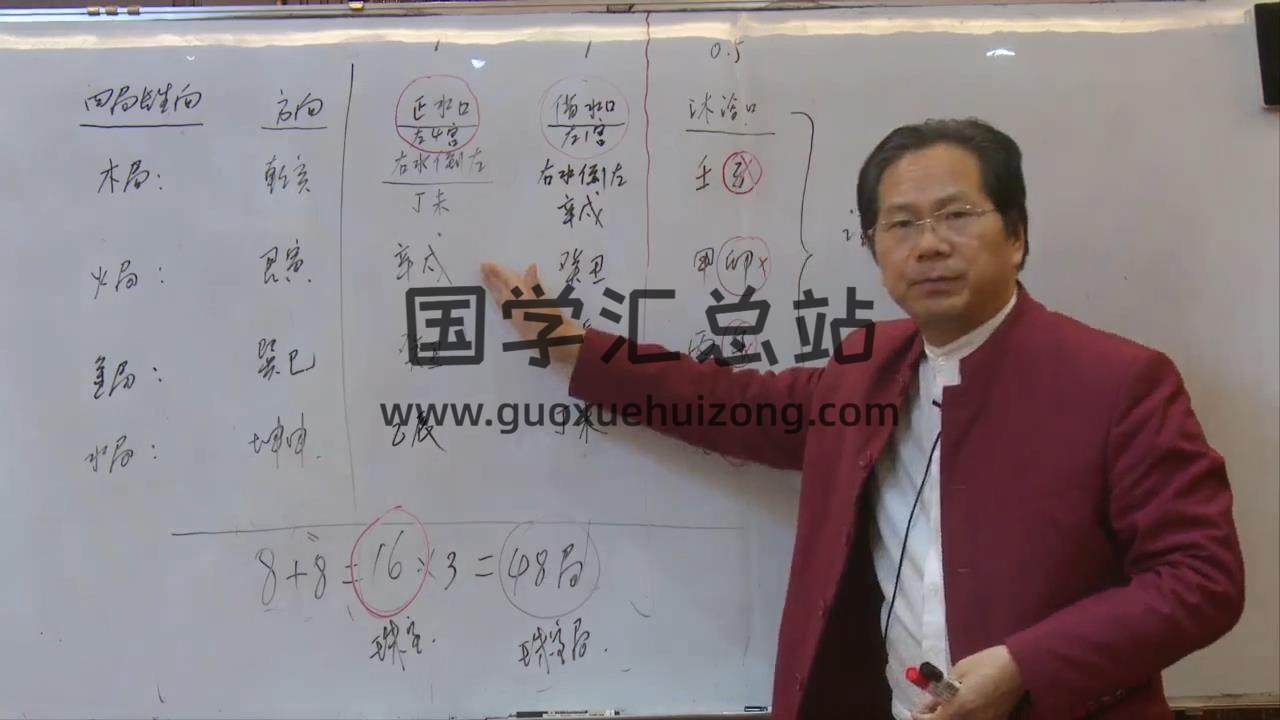 1 1 0.5
四局长生向 方向 正水口 借水口 沐浴口
左4宫 左1宫
木局： 乾亥 右水倒左 右水倒左 壬
丁未 辛戌
火局： 艮寅 辛戌 癸丑 甲卯×
国学汇总站
金局： 巽巳
www.guoxuehuizong.com
水局： 坤申 乙辰 丁未
8+8=16×3=48局
珠宝. 珠宝局.